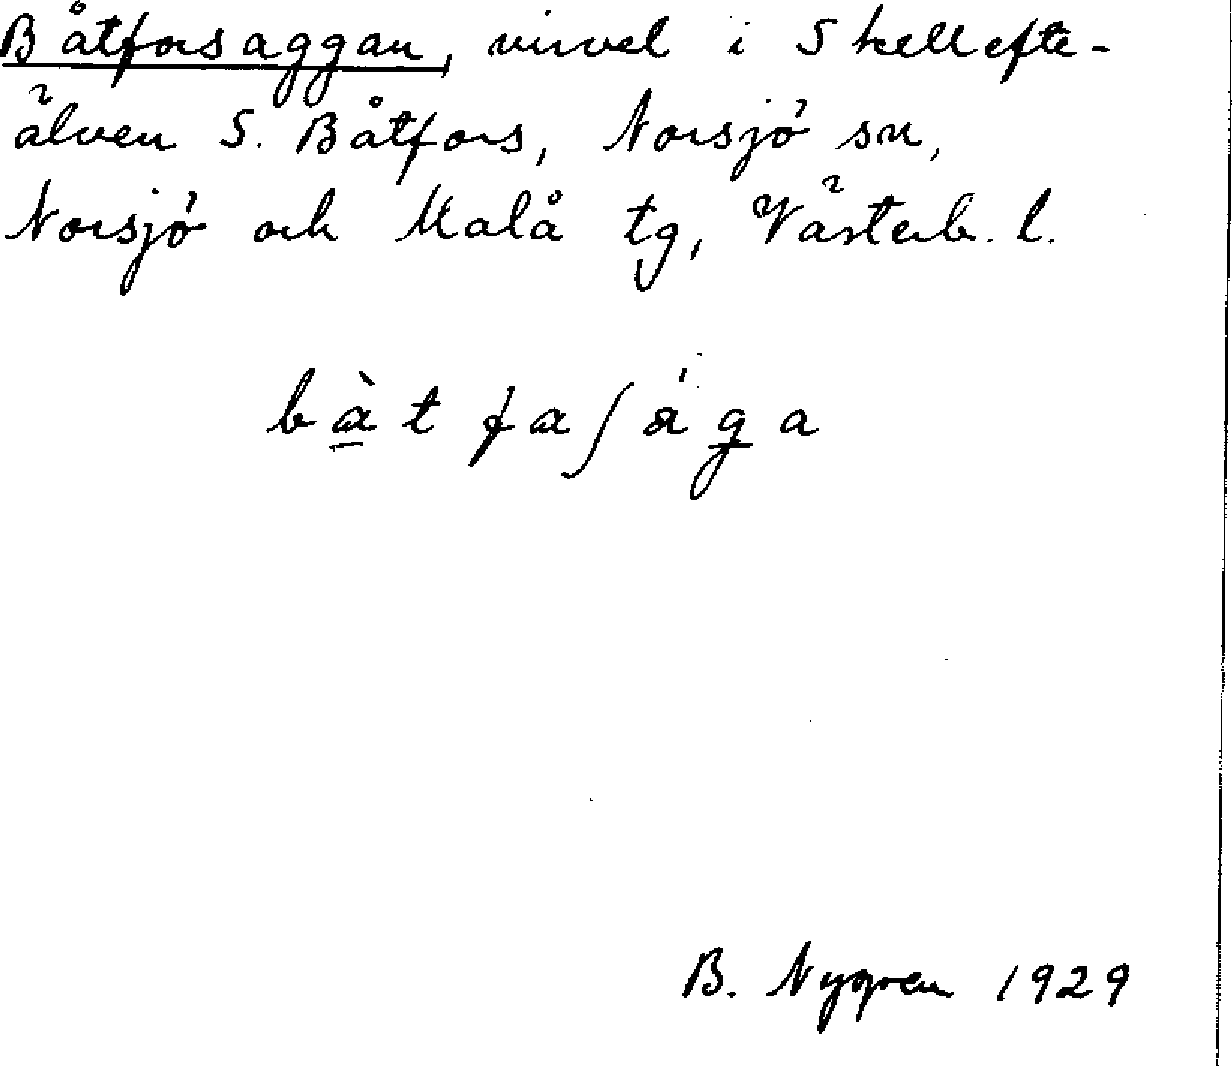 Båtforsaggan, virvel i Skellefte-
älven S. Båtfors, Norsjö sn,
Norsjö och Malå tg, Västerb. l.
bàt faʃága
B. Nygren 1929